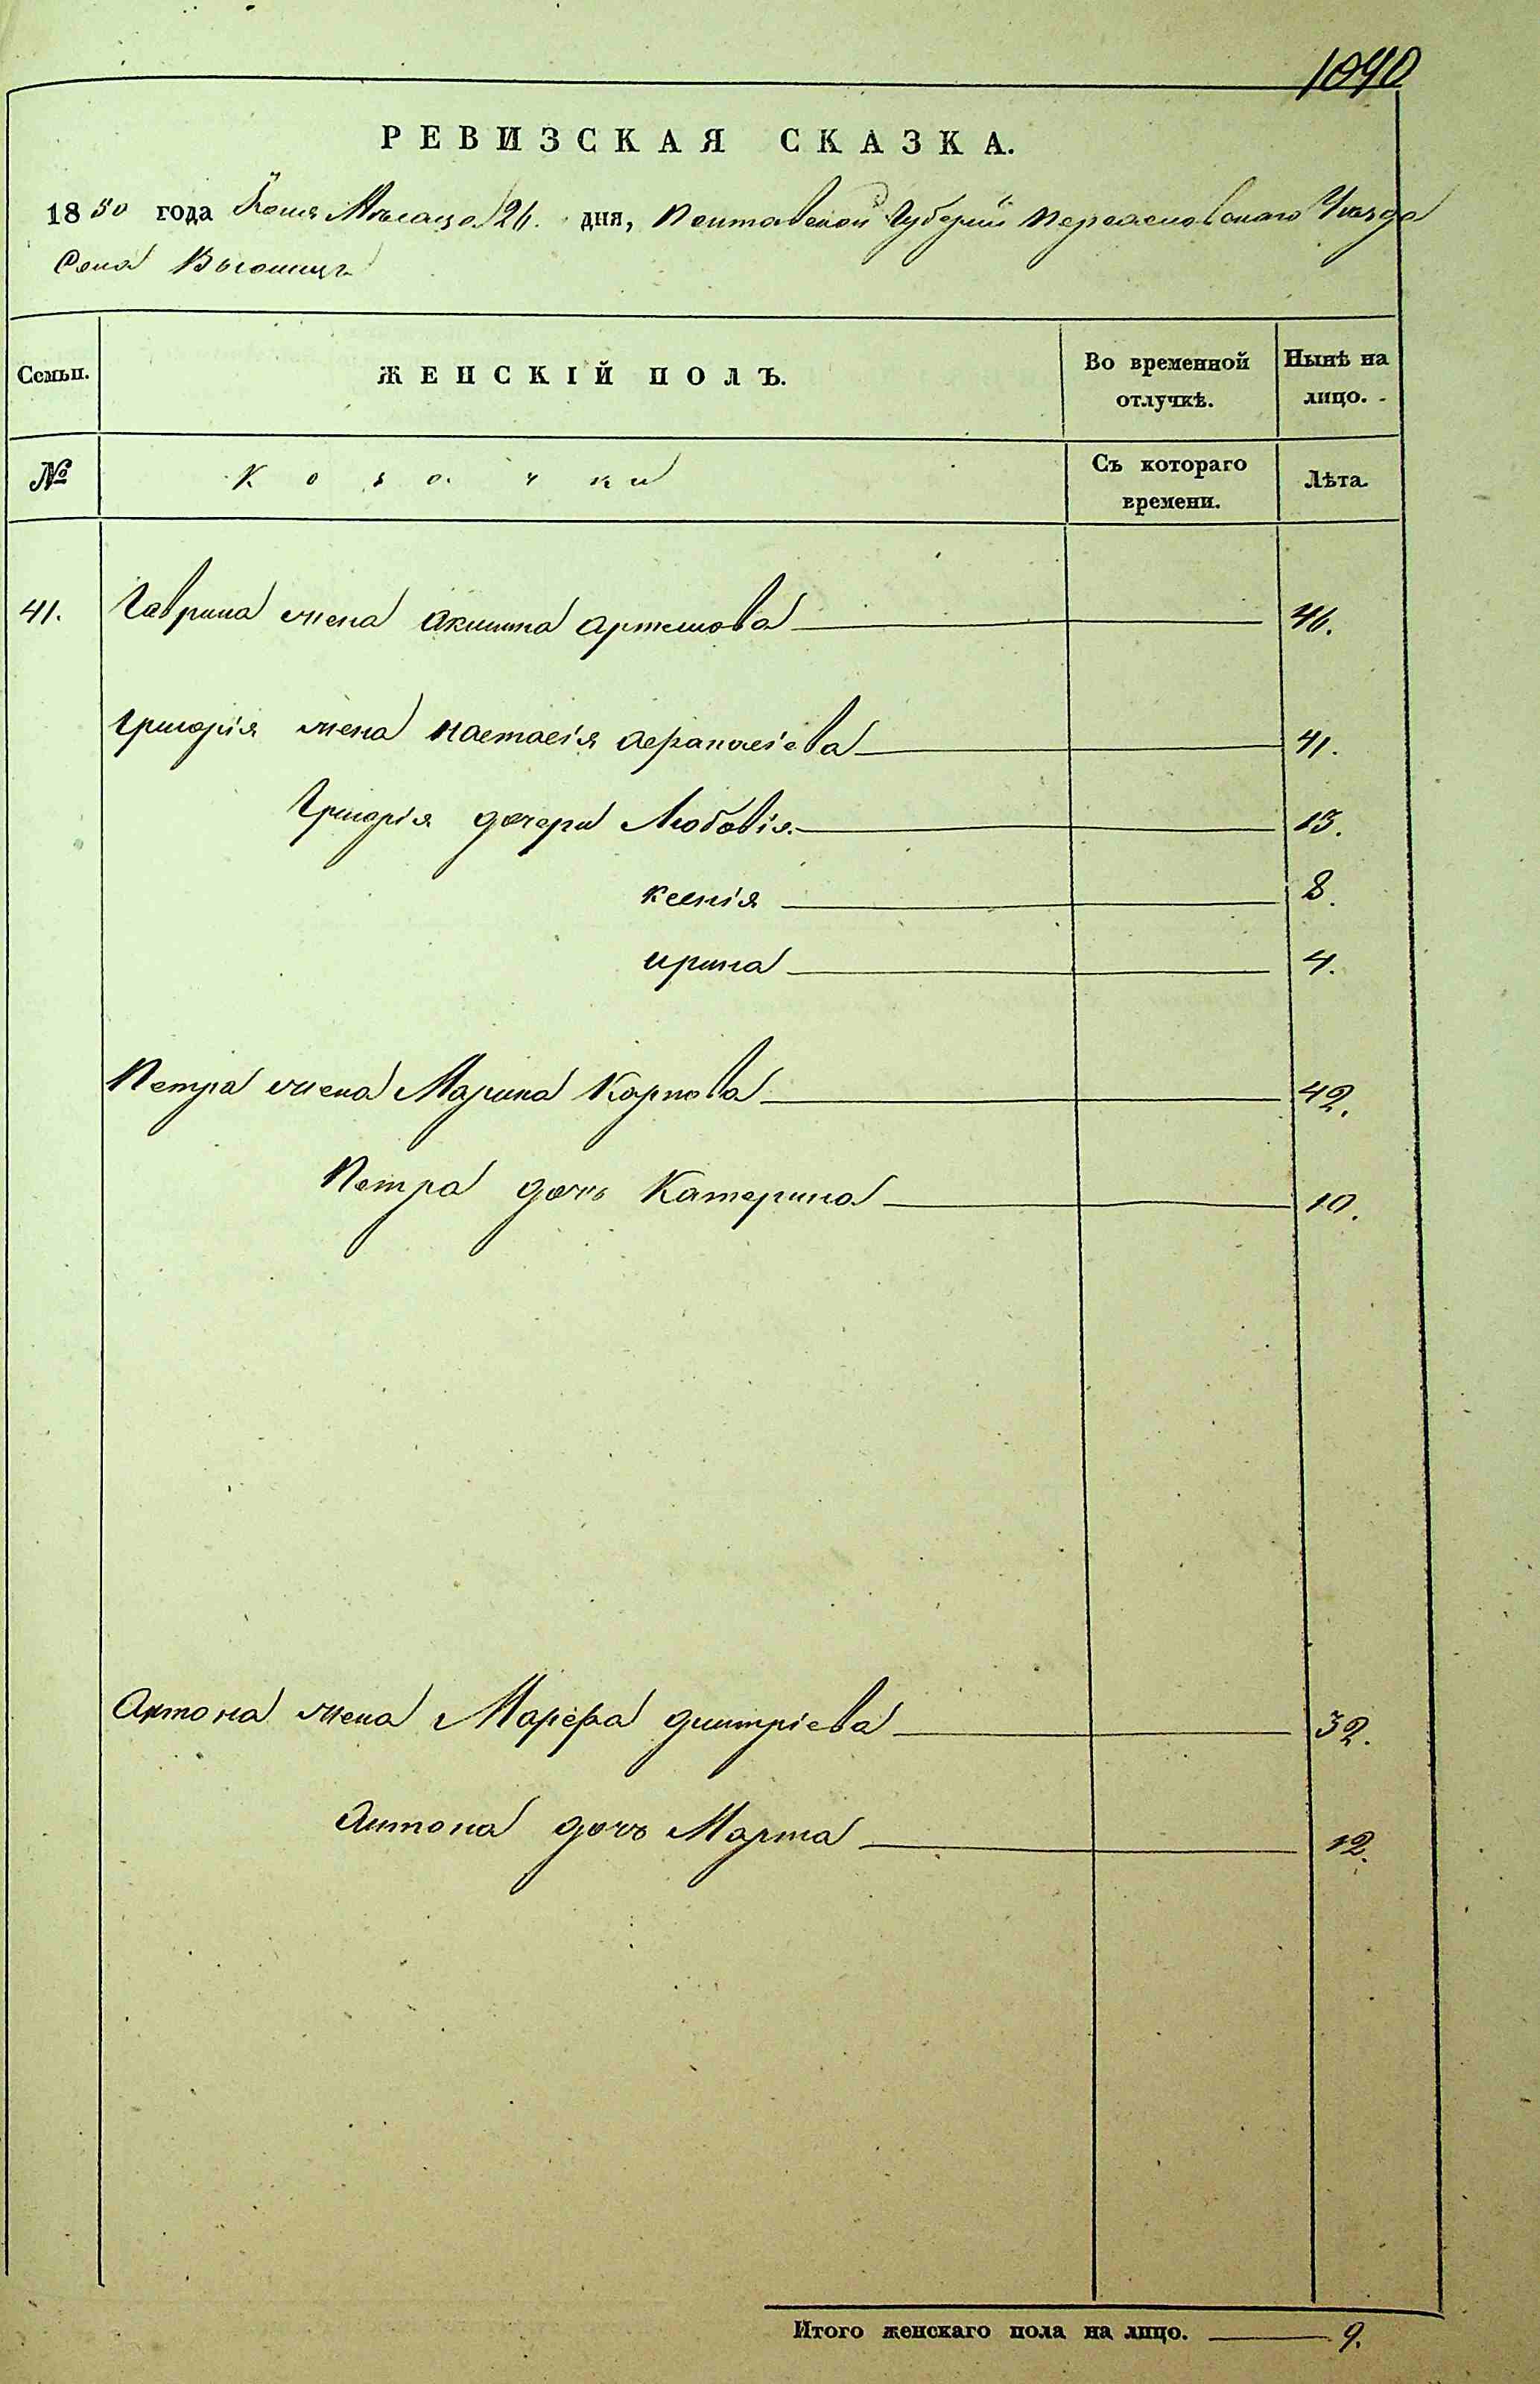 1090
РЕВИЗСКАЯ СКАЗКА.
1850 года Іюня Мѣсяца 26. дня, Полтавской Губерніи Переяславскаго Уѣзда
Села
Семьи. ЖЕНСКІЙ ПОЛЪ. Во временной отлучкѣ. Нынѣ на лицо.
№ Козачки Съ котораго времени. Лѣта.
41. Гаврила жена Акилина Артемова 46.
Григорія жена Настасія Аѳанасіева 41.
Григорія дочери Любовія 13.
Ксенія 8.
Ирина 4.
Петра жена Марина Карпова 42.
Петра дочь Катерина 10.
Антона жена Марѳа Дмитріева 32.
Антона дочь Марта 12.
Итого женскаго пола на лицо. 9.